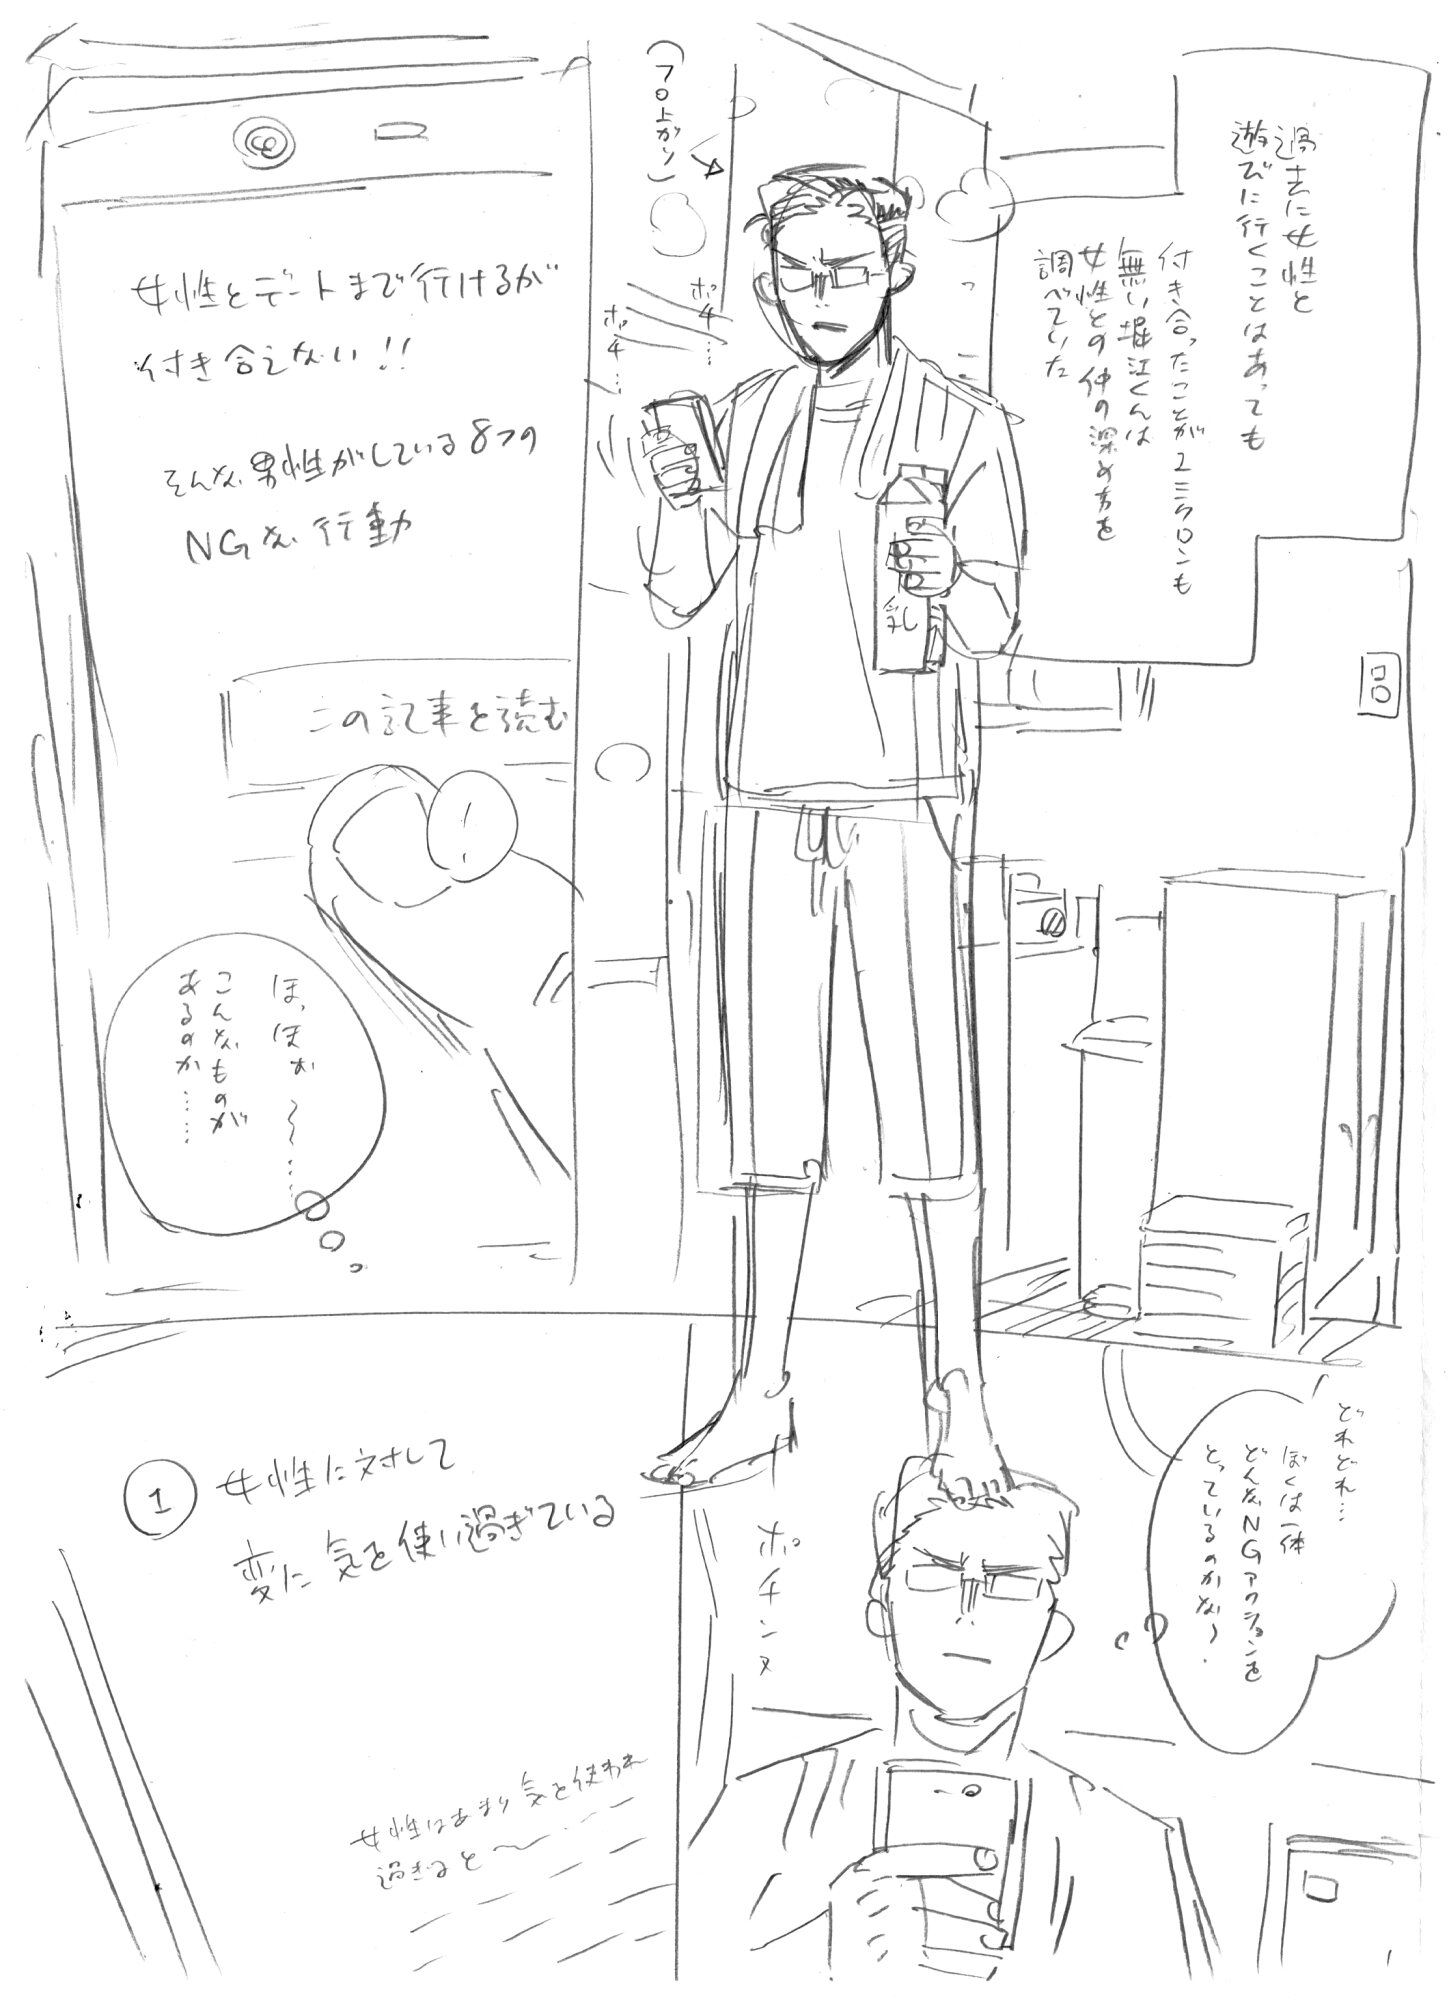 過去に女性と
遊びに行くことはあっても
付き合ったことが1ミクロンも
無い堀江くんは
女性との仲の深め方を
調べていた
(フロ上がり)
ポチ…
ポチ…
乳
女性とデートまで行けるが
付き合えない!!
そんな男性がしている8つの
NGな行動
この記事を読む
ほ、ほぉ〜……
こんなものが
あるのか……
どれどれ…
ぼくは一体
どんなNGアクションを
とっているのかな?
ポチンヌ
① 女性に対して
変に気を使い過ぎている
女性はあまり気を使われ
過ぎると〜